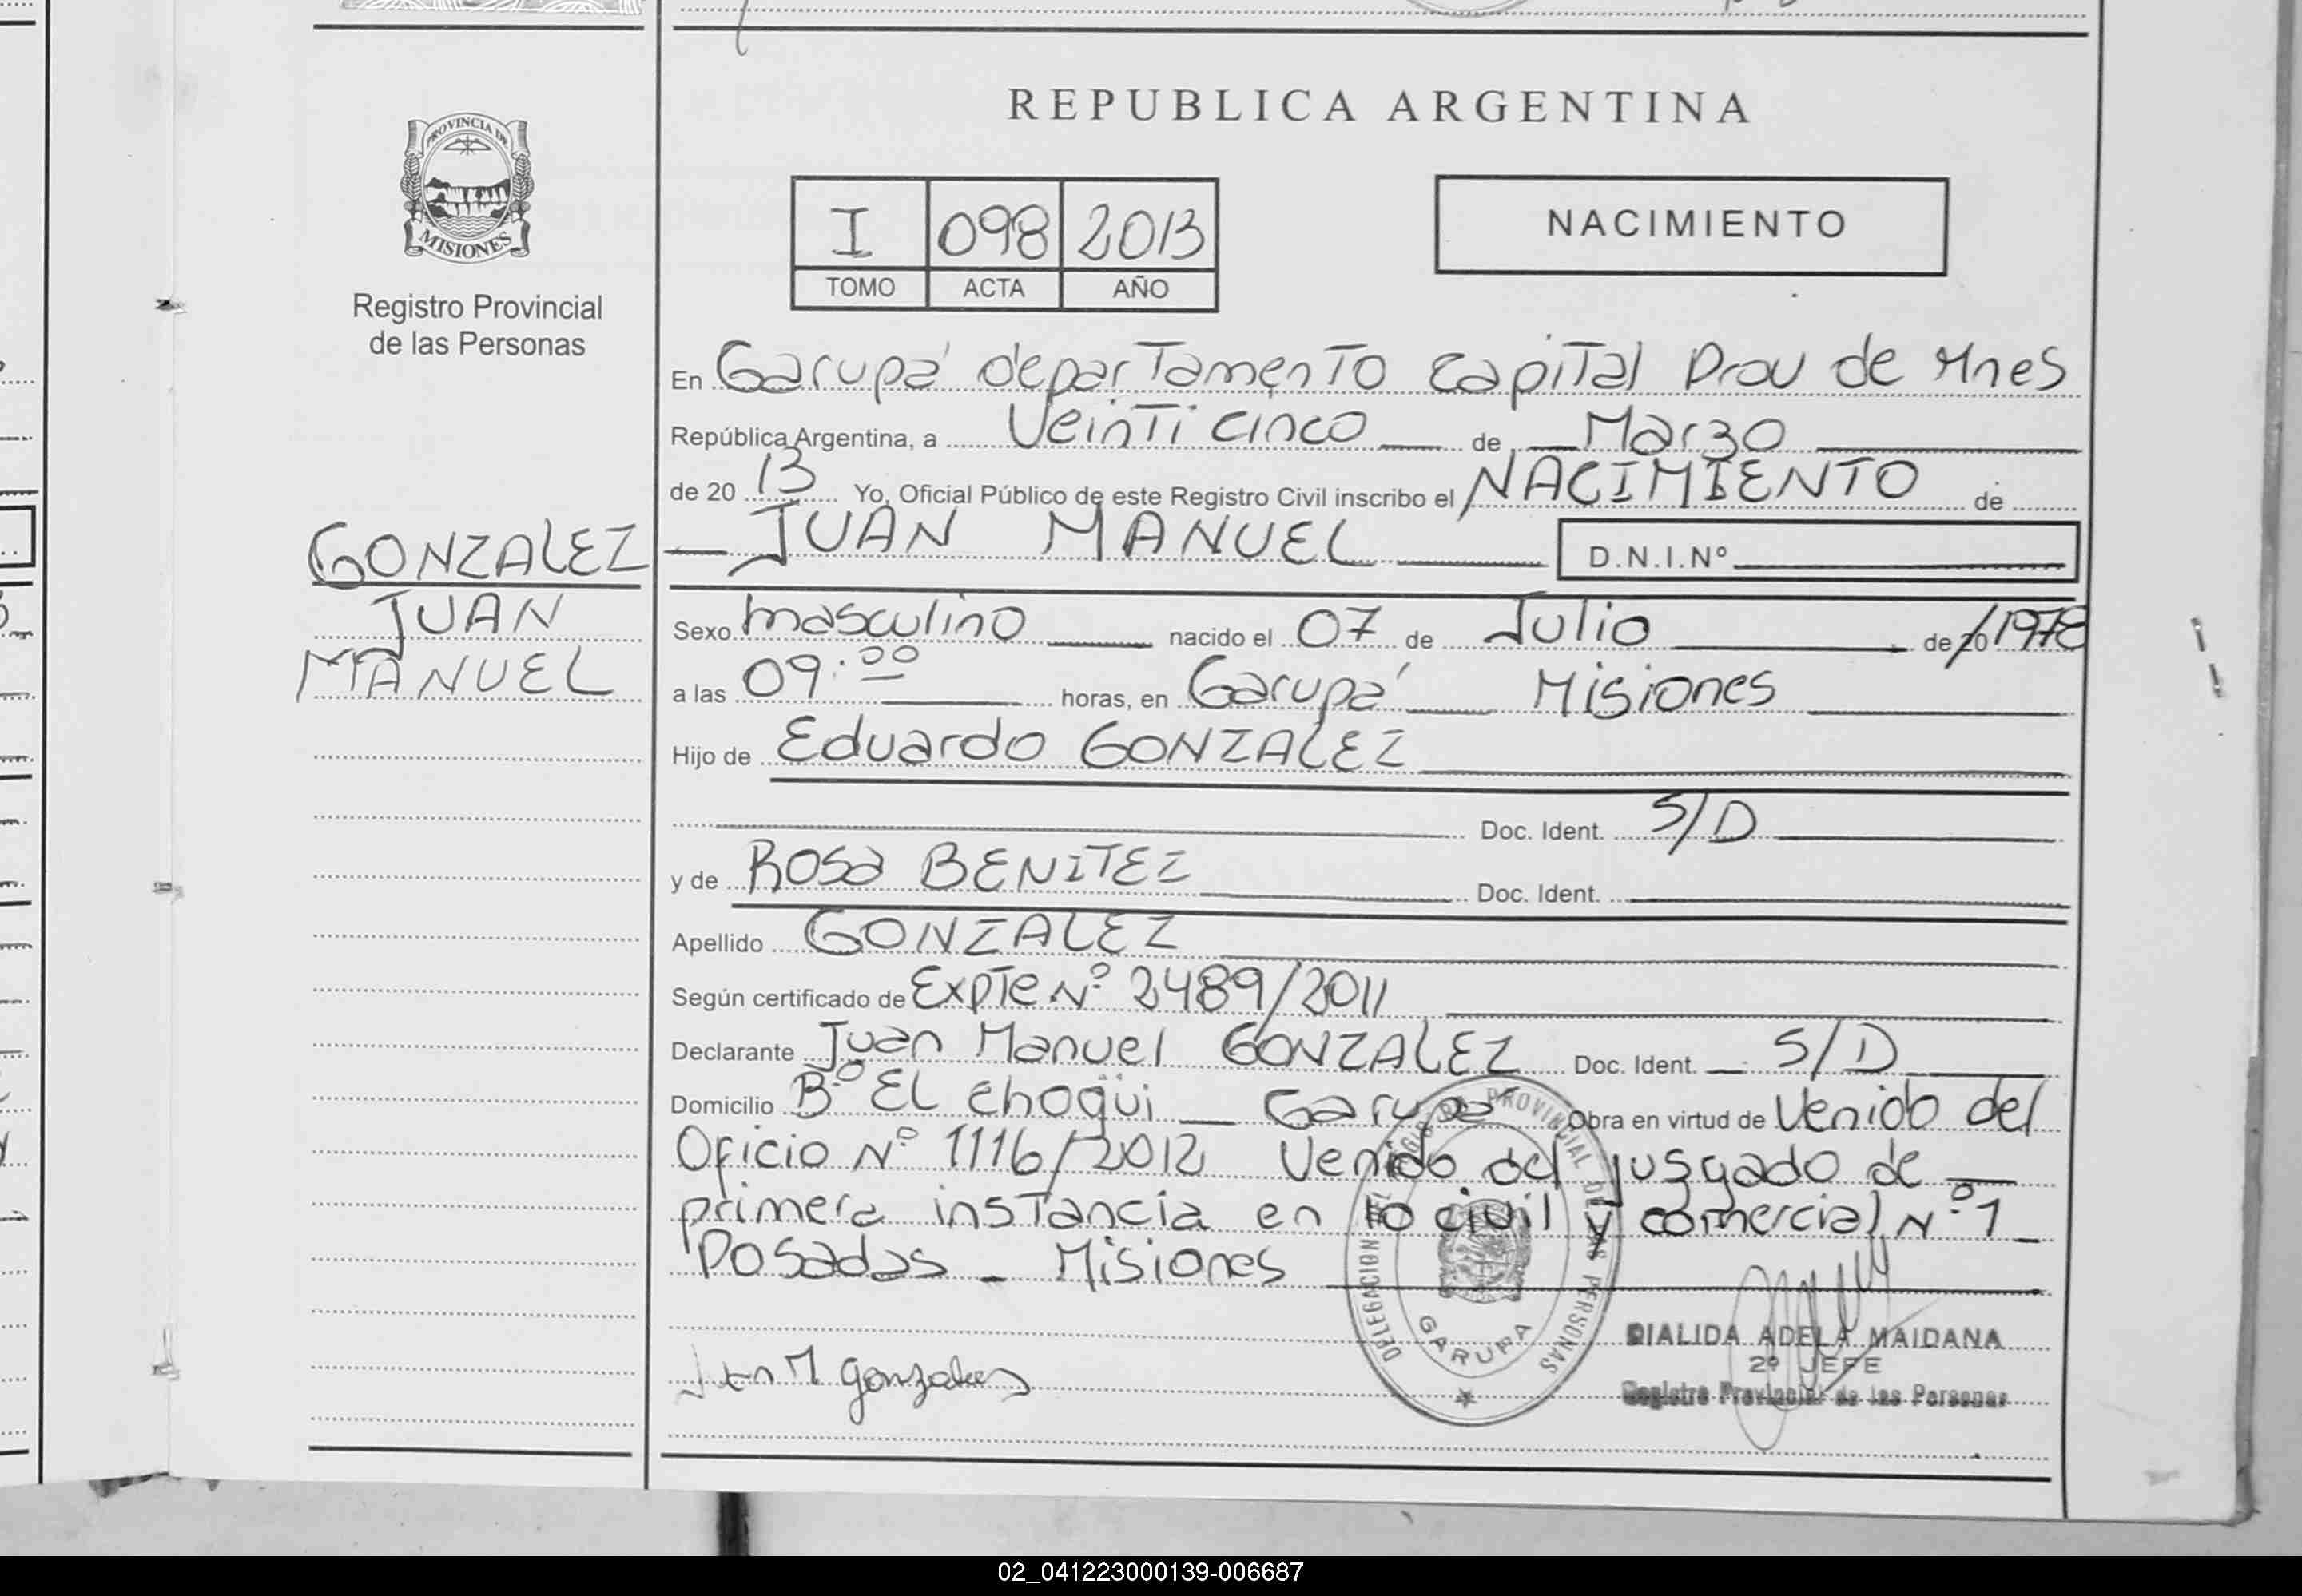 REPUBLICA ARGENTINA
PROVINCIA DE
MISIONES
Registro Provincial
de las Personas
I 098 2013
TOMO ACTA AÑO
NACIMIENTO
En Garupá departamento Capital Prov de Mnes
República Argentina, a Veinti cinco de Marzo
de 20 13 Yo, Oficial Público de este Registro Civil inscribo el NACIMIENTO de
GONZALEZ
JUAN
MANUEL
JUAN MANUEL D.N.I.Nº
Sexo masculino nacido el 07 de Julio de 20 /1978
a las 09:00 horas, en Garupá Misiones
Hijo de Eduardo GONZALEZ
Doc. Ident. S/D
y de Rosa BENITEZ Doc. Ident.
Apellido GONZALEZ
Según certificado de Expte Nº 2489/2011
Declarante Juan Manuel GONZALEZ Doc. Ident. S/D
Domicilio Bº EL choqüi Garupa Obra en virtud de Venido del
Oficio Nº 1116/2012 Venido del jusgado de
primera instancia en lo civil y comercial Nº 1
Posadas - Misiones
DELEGACION DEL REGISTRO PROVINCIAL DE LAS PERSONAS
GARUPA
DIALIDA ADELA MAIDANA
2º JEFE
Registro Provincial de las Personas
Juan M gonzales
02_041223000139-006687